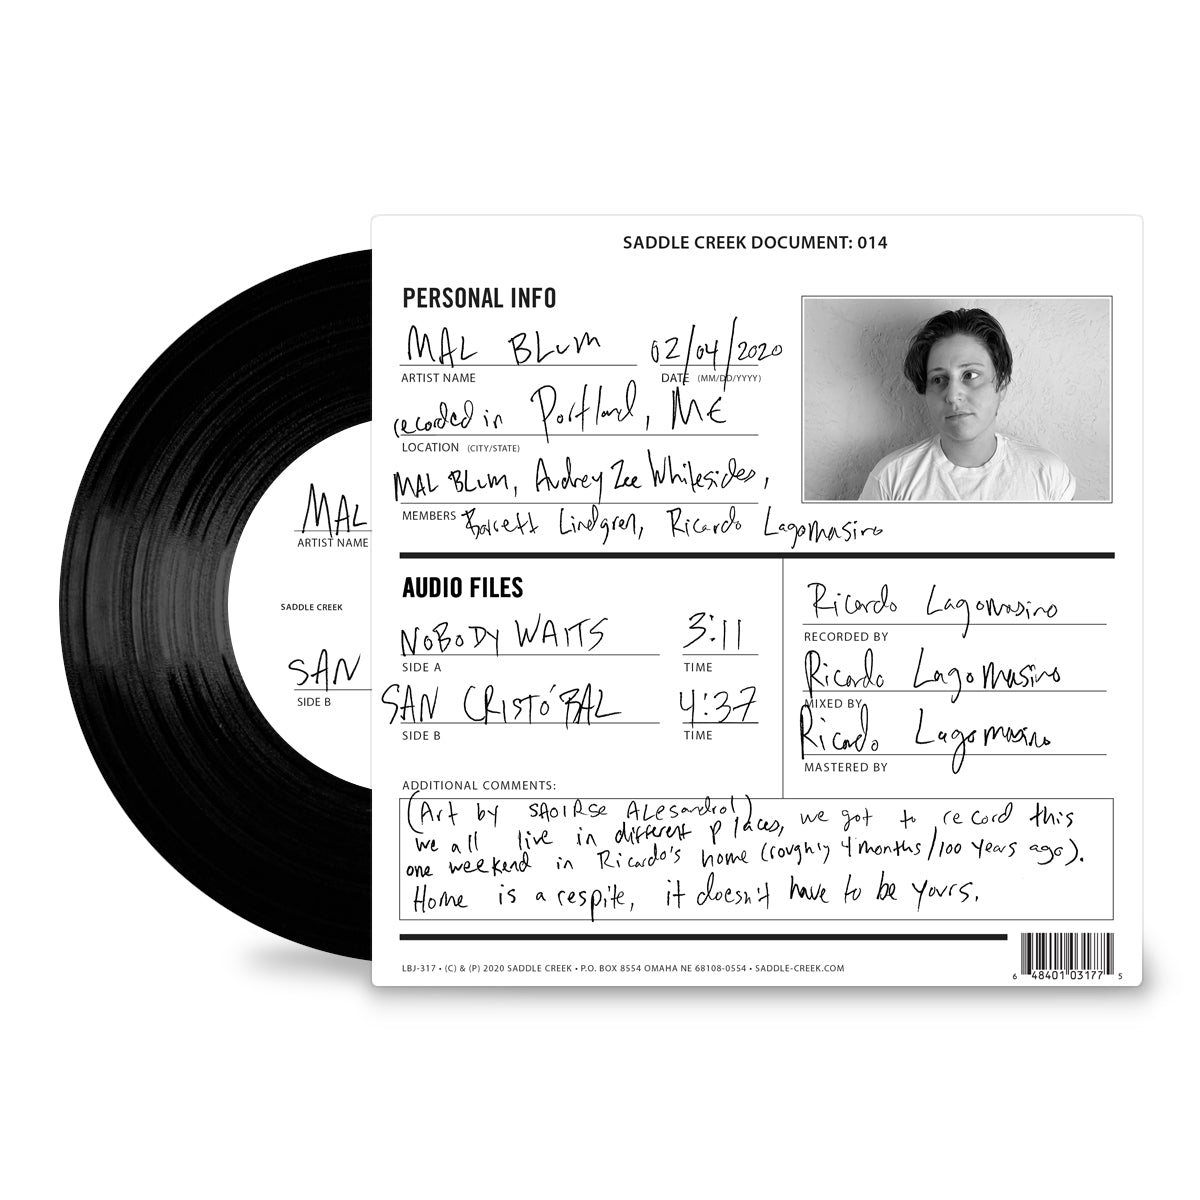 SADDLE CREEK DOCUMENT: 014
PERSONAL INFO
MAL BLUM 02/04/2020
ARTIST NAME DATE (MM/DD/YYYY)
recorded in Portland, ME
LOCATION (CITY/STATE)
MAL BLUM, Audrey Zee Whitesides,
MEMBERS Barrett Lindgren, Ricardo Lagomasino
AUDIO FILES
NOBODY WAITS 3:11
SIDE A TIME
SAN CRISTÓBAL 4:37
SIDE B TIME
Ricardo Lagomasino
RECORDED BY
Ricardo Lagomasino
MIXED BY
Ricardo Lagomasino
MASTERED BY
ADDITIONAL COMMENTS:
(Art by SAOIRSE ALESANDRO!)
we all live in different places, we got to record this
one weekend in Ricardo's home (roughly 4 months/100 years ago).
Home is a respite, it doesn't have to be yours.
LBJ-317 • (C) & (P) 2020 SADDLE CREEK • P.O. BOX 8554 OMAHA NE 68108-0554 • SADDLE-CREEK.COM
6 48401 03177 5
MAL
ARTIST NAME
SADDLE CREEK
SAN
SIDE B